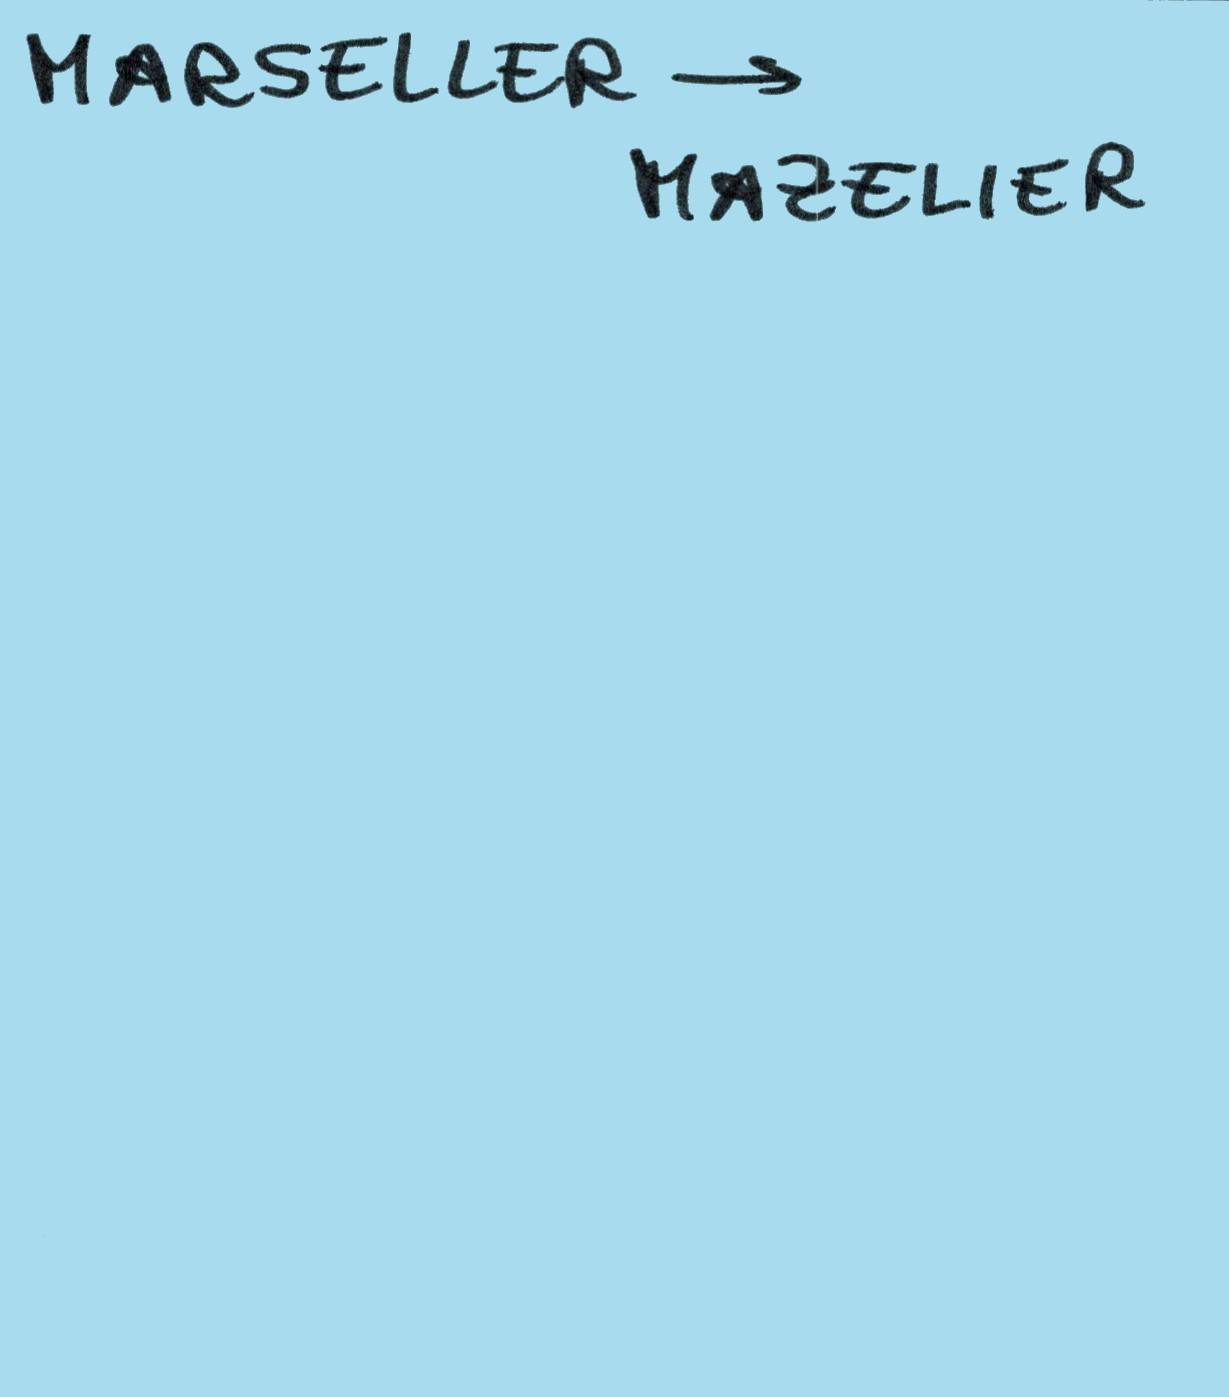 MARSELLER →
MAZELIER